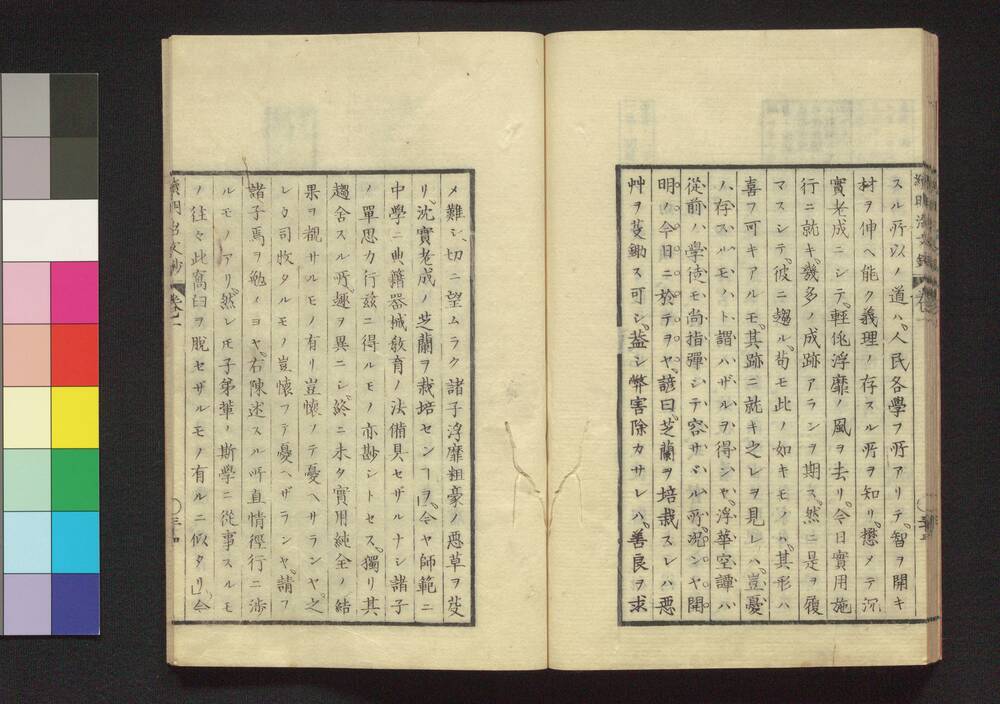 スル所以ノ道ハ人民各學フ所アリテ智ヲ開キ
材ヲ伸ヘ能ク義理ノ存スル所ヲ知リ懋メテ沉
實老成ニシテ輕佻浮靡ノ風ヲ去リ今日實用施
行ニ就キ幾多ノ成跡アランヲ期ス然ニ是ヲ履
マスシテ彼ニ趨ル苟モ此ノ如キモノハ其形ハ
喜フ可キアルモ其跡ニ就キ之レヲ見レハ豈憂
ハ存スルモノハト謂ハザルヲ得ンヤ浮華空譚ハ
從前ハ學徒モ尚指彈シテ容サヾル所況ンヤ開
明ノ今日ニ於テヲヤ諺曰芝蘭ヲ培栽スレハ惡
艸ヲ芟鋤ス可シ蓋シ弊害除カサレハ善良ヲ求
メ難シ切ニ望ムラク諸子浮靡粗豪ノ惡草ヲ芟
リ沈實老成ノ芝蘭ヲ栽培センヿヲ今ヤ師範ニ
中學ニ典籍器械教育ノ法備具セザルナシ諸子
ノ單思力行茲ニ得ルモノ亦尠シトセス獨リ其
趨舍スル所趣ヲ異ニシ終ニ未タ實用純全ノ結
果ヲ覩サルモノ有リ豈懷ノテ憂ヘサランヤ之
レカ司牧タルモノ豈懷フテ憂ヘザランヤ請フ
諸子焉ヲ勉ノヨヤ右陳述スル所直情徑行ニ渉
ルモノアリ然レ𪜈子弟輩ノ斯學ニ從事スルモ
ノ往々此窩臼ヲ脱セザルモノ有ルニ似タリ」今
卷一